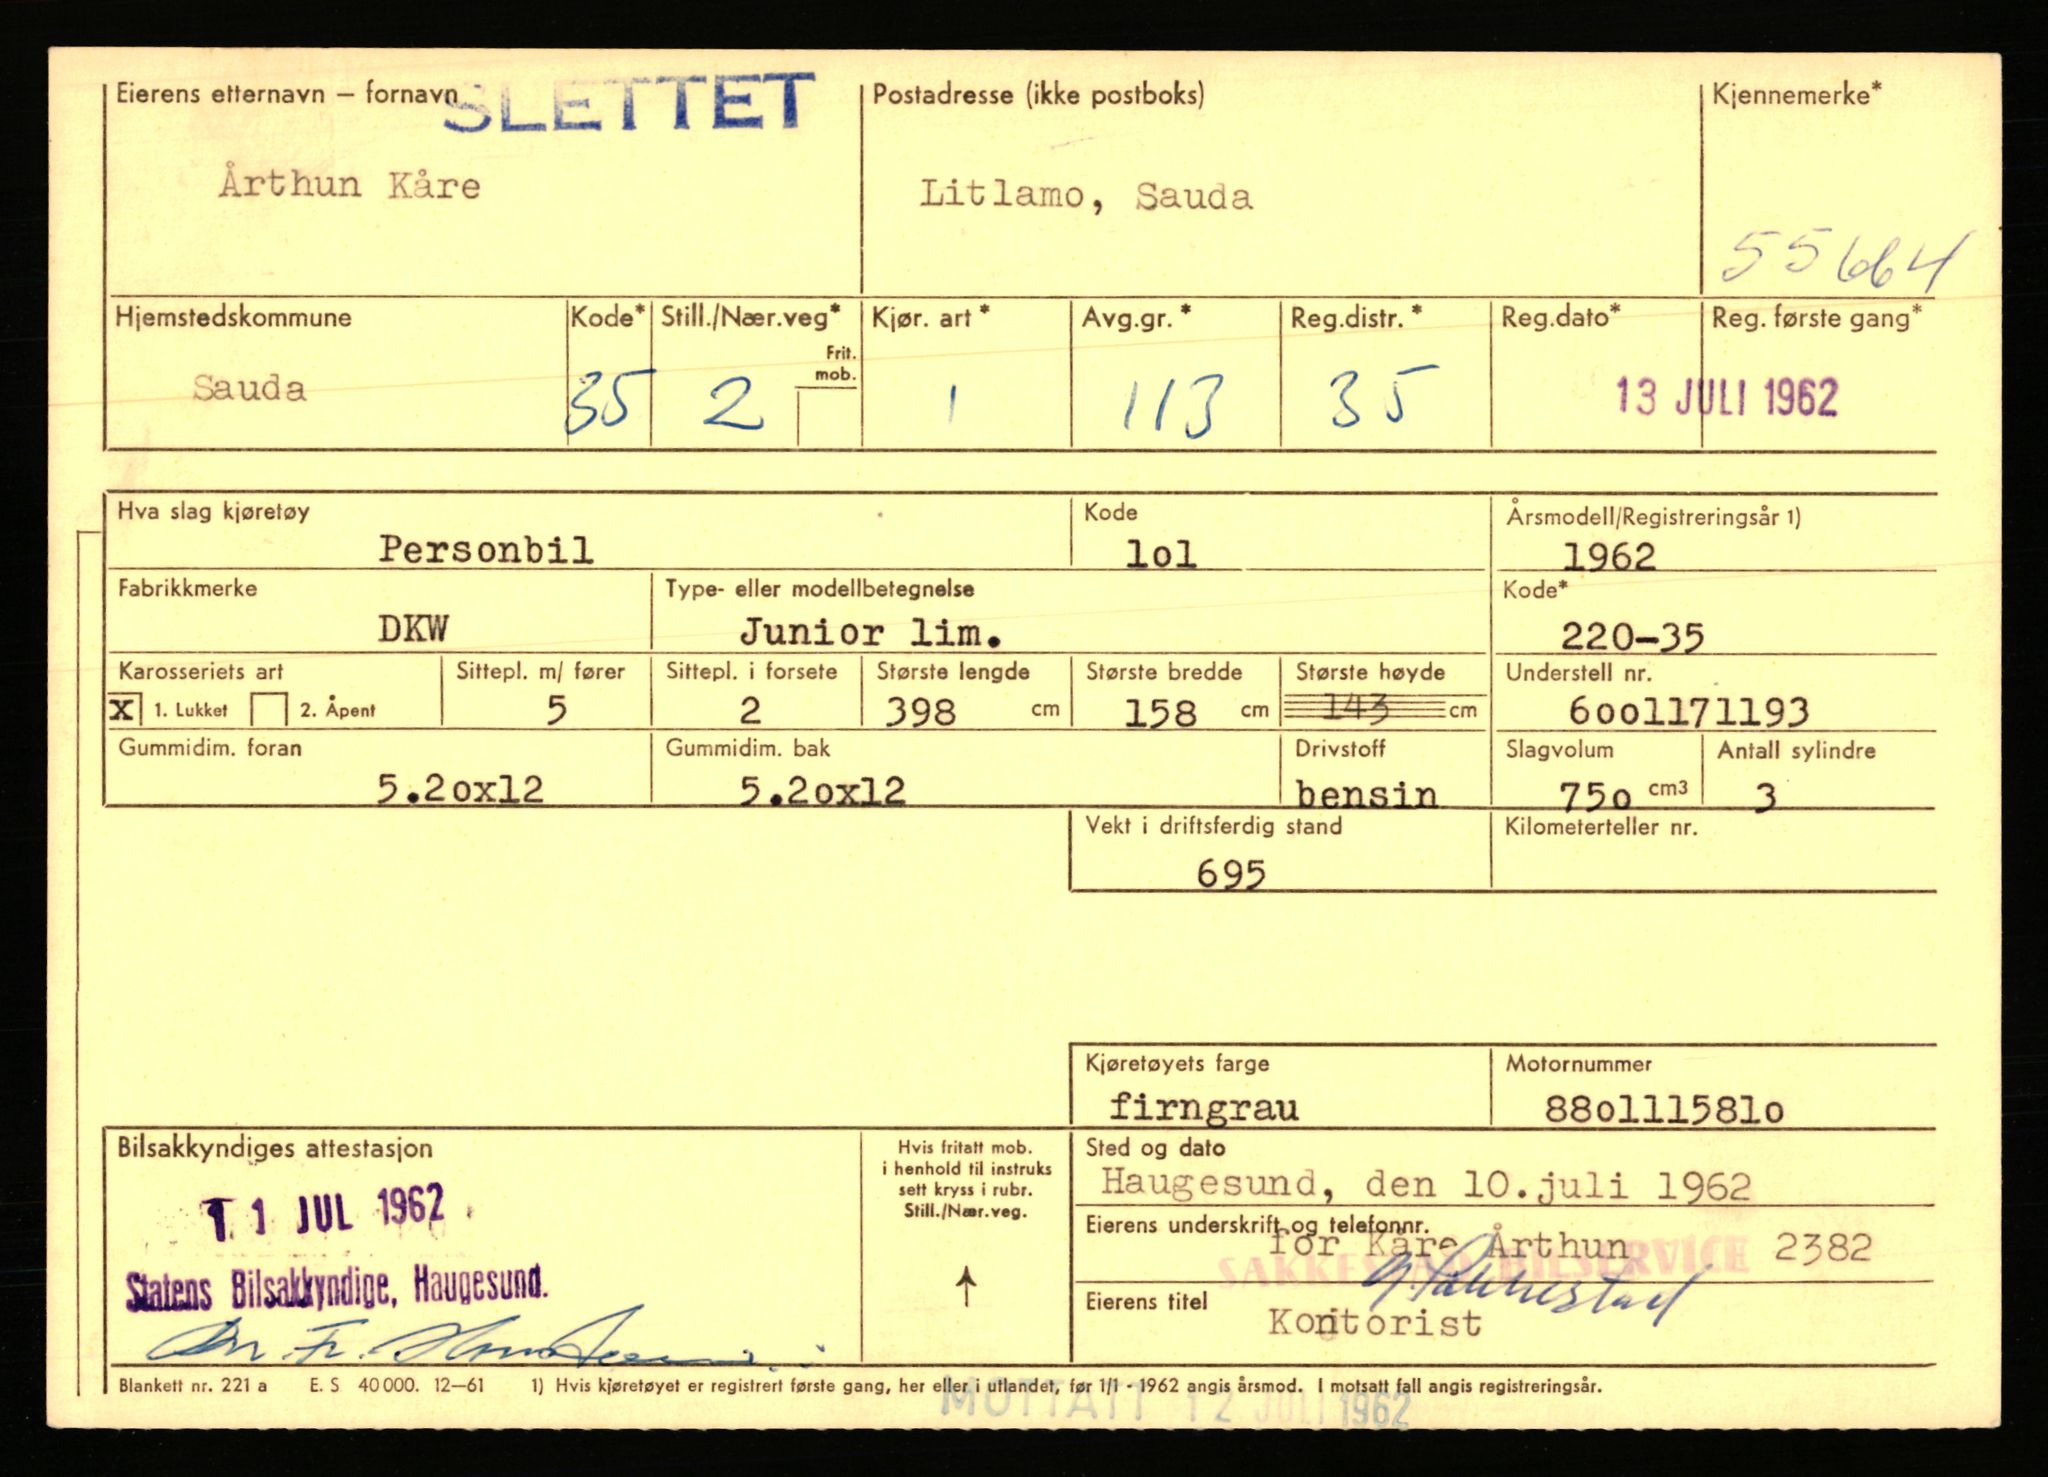 Eierens etternavn – fornavn SLETTET Postadresse (ikke postboks) Kjennemerke*
Årthun Kåre Litlamo, Sauda
55664
Hjemstedskommune Kode* Still./Nær.veg* Kjør. art * Avg.gr. * Reg.distr. * Reg.dato* Reg. første gang*
Frit.
mob.
Sauda 35 2 1 113 35 13 JULI 1962
Hva slag kjøretøy Kode Årsmodell/Registreringsår 1)
Personbil lol 1962
Fabrikkmerke Type- eller modellbetegnelse Kode*
DKW Junior lim. 220-35
Karosseriets art Sittepl. m/ fører Sittepl. i forsete Største lengde Største bredde Største høyde Understell nr.
X 1. Lukket 2. Åpent 5 2 398 cm 158 cm 143 cm 6oo1171193
Gummidim. foran Gummidim. bak Drivstoff Slagvolum Antall sylindre
5.2ox12 5.2ox12 bensin 75o cm3 3
Vekt i driftsferdig stand Kilometerteller nr.
695
Kjøretøyets farge Motornummer
firngrau 88o111581o
Bilsakkyndiges attestasjon Hvis fritatt mob. Sted og dato
i henhold til instruks
sett kryss i rubr.
Still./Nær.veg.
Haugesund, den 10.juli 1962
11 JUL 1962
Eierens underskrift og telefonnr.
for Kåre Årthun 2382
SAKKESTAD BILSERVICE
Statens Bilsakkyndige, Haugesund.
Eierens titel
Kontorist
Blankett nr. 221 a E. S 40 000. 12–61 1) Hvis kjøretøyet er registrert første gang, her eller i utlandet, før 1/1 - 1962 angis årsmod. I motsatt fall angis registreringsår.
MOTTATT 12 JULI 1962